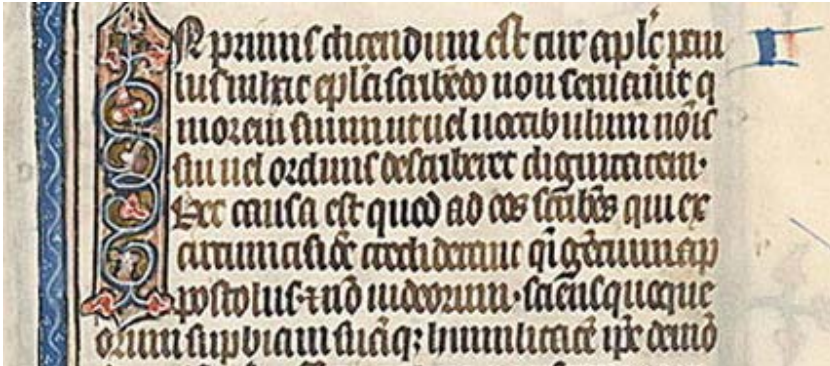 IN primis dicendum est cur aplc̄ pau
lus in hac epl̄a scribēdo non seruauit q̄
morem suum ut uel uocabulum nōis
sui uel ordinis describeret dignitatem.
Hec causa est quod ad eos scribēs qui ex
circumcisiōe crediderunt q̄i gētium ap
postolus. ⁊ nō iudeorum. sciens quoque
orum supbiam suāq; humilitatē ip̄e demō